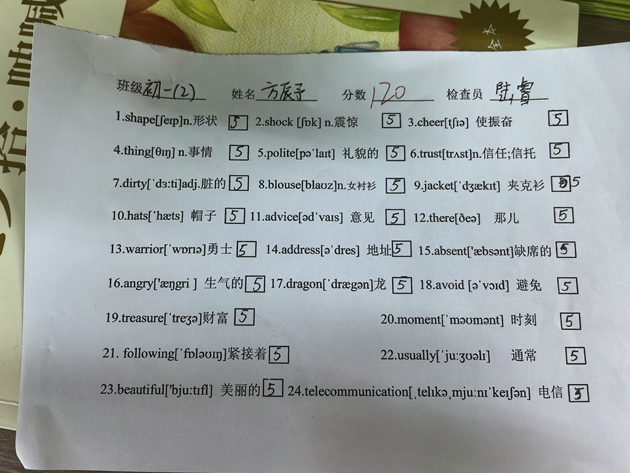 班级初一(2) 姓名方辰子 分数120 检查员 陆睿
1.shape[ʃeɪp]n.形状 5 2.shock [ʃɒk] n.震惊 5 3.cheer[tʃɪə] 使振奋 5
4.thing[θɪŋ] n.事情 5 5.polite[pə'laɪt] 礼貌的 5 6.trust[trʌst]n.信任;信托 5
7.dirty['dɜ:ti]adj.脏的 5 8.blouse[blaʊz]n.女衬衫 5 9.jacket['dʒækɪt] 夹克衫 5
10.hats['hæts] 帽子 5 11.advice[əd'vaɪs] 意见 5 12.there[ðeə] 那儿 5
13.warrior['wɒrɪə]勇士 5 14.address[ə'dres] 地址 5 15.absent['æbsənt]缺席的 5
16.angry['æŋgri ] 生气的 5 17.dragon['drægən]龙 5 18.avoid [ə'vɔɪd] 避免 5
19.treasure['treʒə]财富 5 20.moment['məʊmənt] 时刻 5
21. following['fɒləʊɪŋ]紧接着 5 22.usually['ju:ʒʊəlɪ] 通常 5
23.beautiful['bju:tɪfl] 美丽的 5 24.telecommunication[ˌtelɪkəˌmju:nɪ'keɪʃən] 电信 5